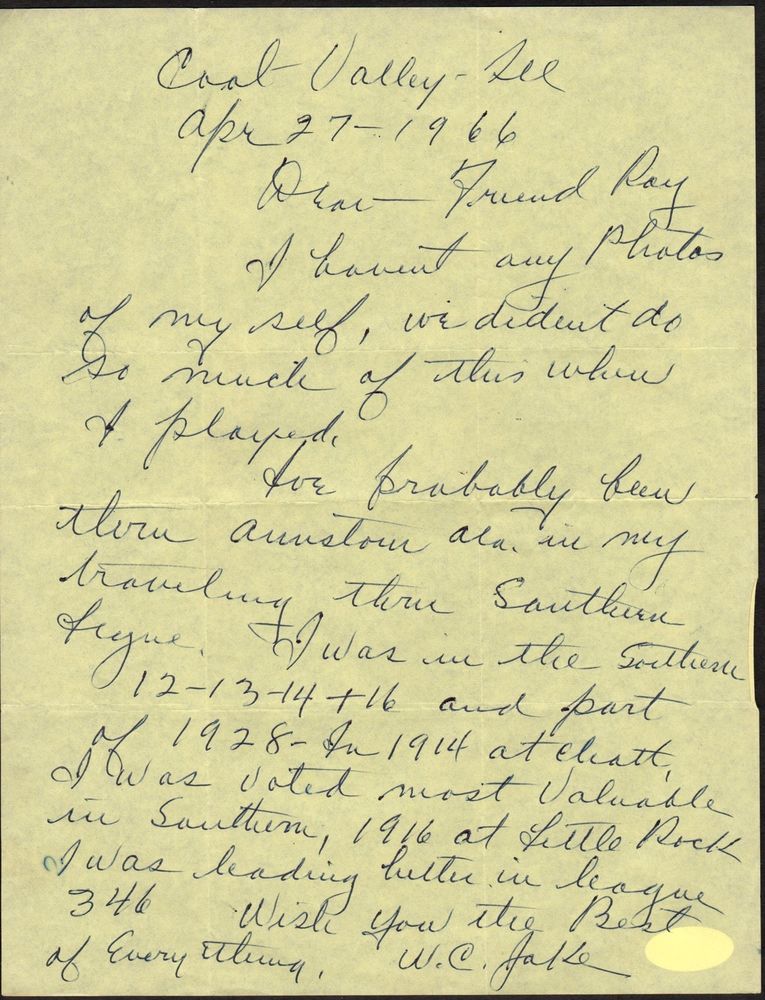 Coal Valley - Ill
Apr 27 - 1966
Dear Friend Ray
I havent any Photos
of my self, we dident do
so much of this when
I played.
Ive probably been
thru Annstoun ala. in my
traveling thru Southern
Legue. I was in the Southern
12-13-14 + 16 and part
of 1928 - In 1914 at Chatt,
I was voted most Valuable
in Southern, 1916 at Little Rock
I was leading hitter in league
346 Wish you the Best
of Every thing. W.C. Jake